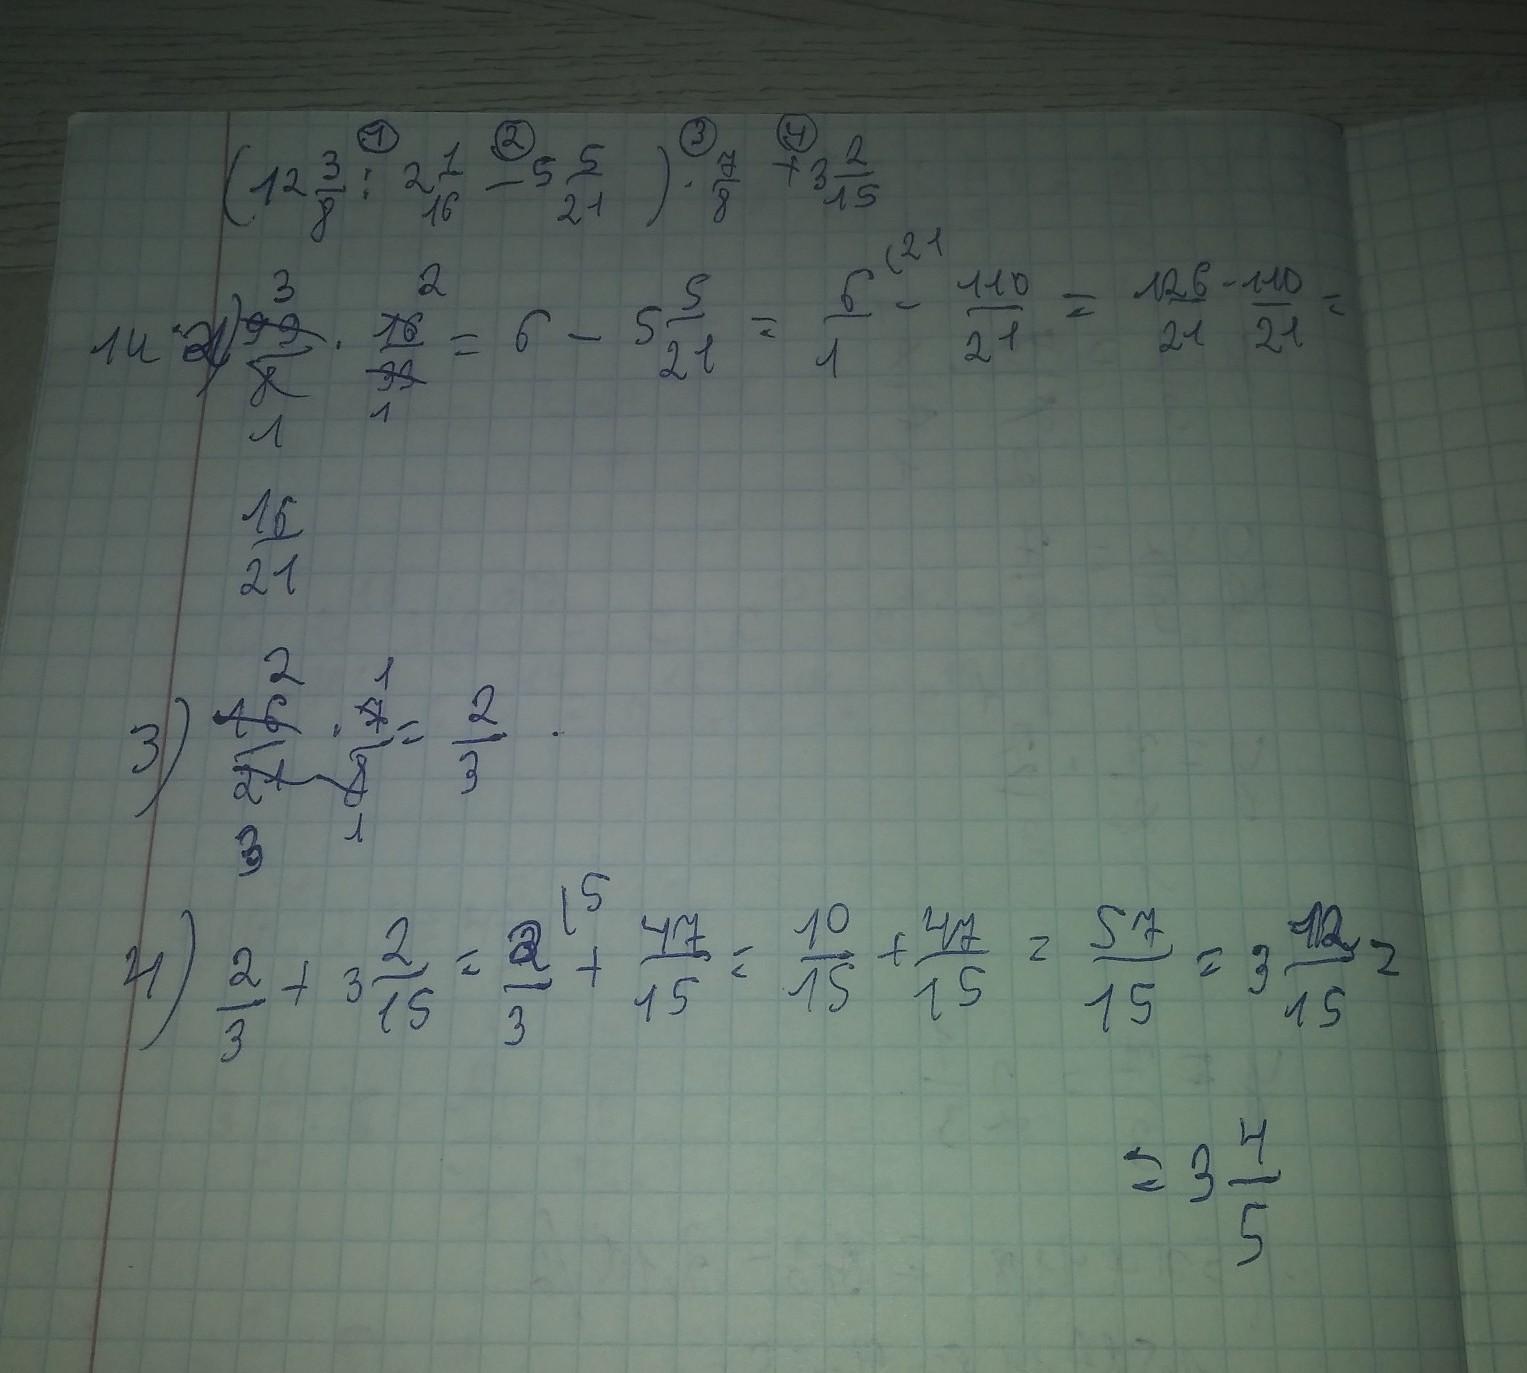 ① ② ③ ④
(12 3/8 : 2 1/16 - 5 5/21) · 7/8 + 3 2/15
3 2 (21
1и 2) 99/8 · 16/33 = 6 - 5 5/21 = 6/1 - 110/21 = 126/21 - 110/21 =
1 1
16/21
2 1
3) 16/21 · 7/8 = 2/3 .
3 1
(5
4) 2/3 + 3 2/15 = 2/3 + 47/15 = 10/15 + 47/15 = 57/15 = 3 12/15 =
= 3 4/5